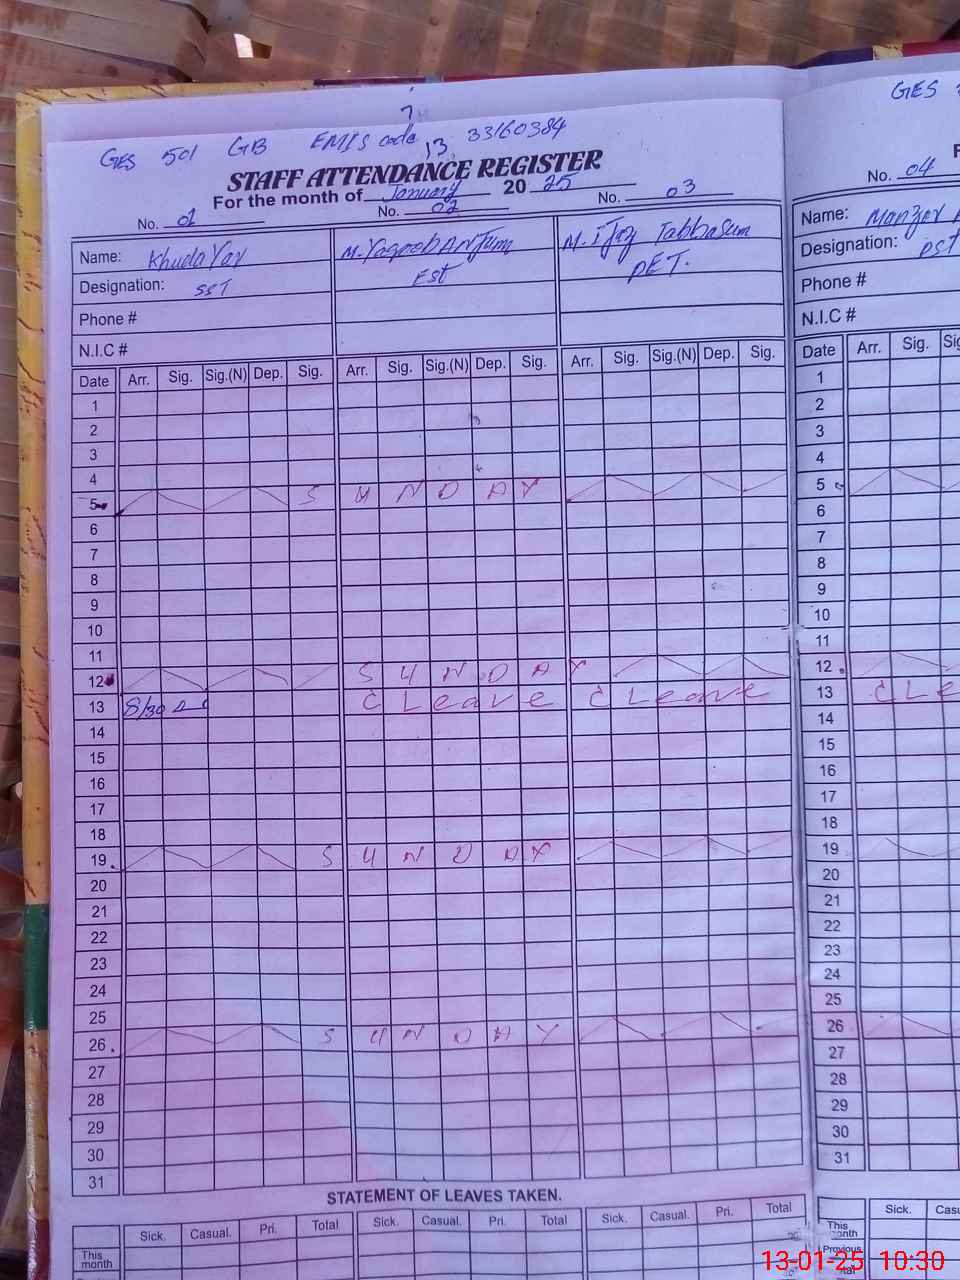 GES
GES 501 GB EMIS code 33160384
13
STAFF ATTENDANCE REGISTER
For the month of January 20 25
No. 01 No. 02 No. 03 No. 04
Name: Khuda Yar M. Yaqoob ANJum M. IJaz Tabbasum Name: Manzer
Designation: SST EST PET. Designation: PST
Phone # Phone #
N.I.C # N.I.C #
Date Arr. Sig. Sig.(N) Dep. Sig. Arr. Sig. Sig.(N) Dep. Sig. Arr. Sig. Sig.(N) Dep. Sig. Date Arr. Sig.
1 1
2 2
3 3
4 4
5 SUNDAY 5
6 6
7 7
8 8
9 9
10 10
11 11
12 SUNDAY 12
13 8/30 C Leave C Leave 13 C Le
14 14
15 15
16 16
17 17
18 18
19 SUNDAY 19
20 20
21 21
22 22
23 23
24 24
25 25
26 SUNDAY 26
27 27
28 28
29 29
30 30
31 31
STATEMENT OF LEAVES TAKEN.
Sick. Casual. Pri. Total Sick. Casual. Pri. Total Sick. Casual. Pri. Total Sick.
This month This month
Provious
13-01-25 10:30